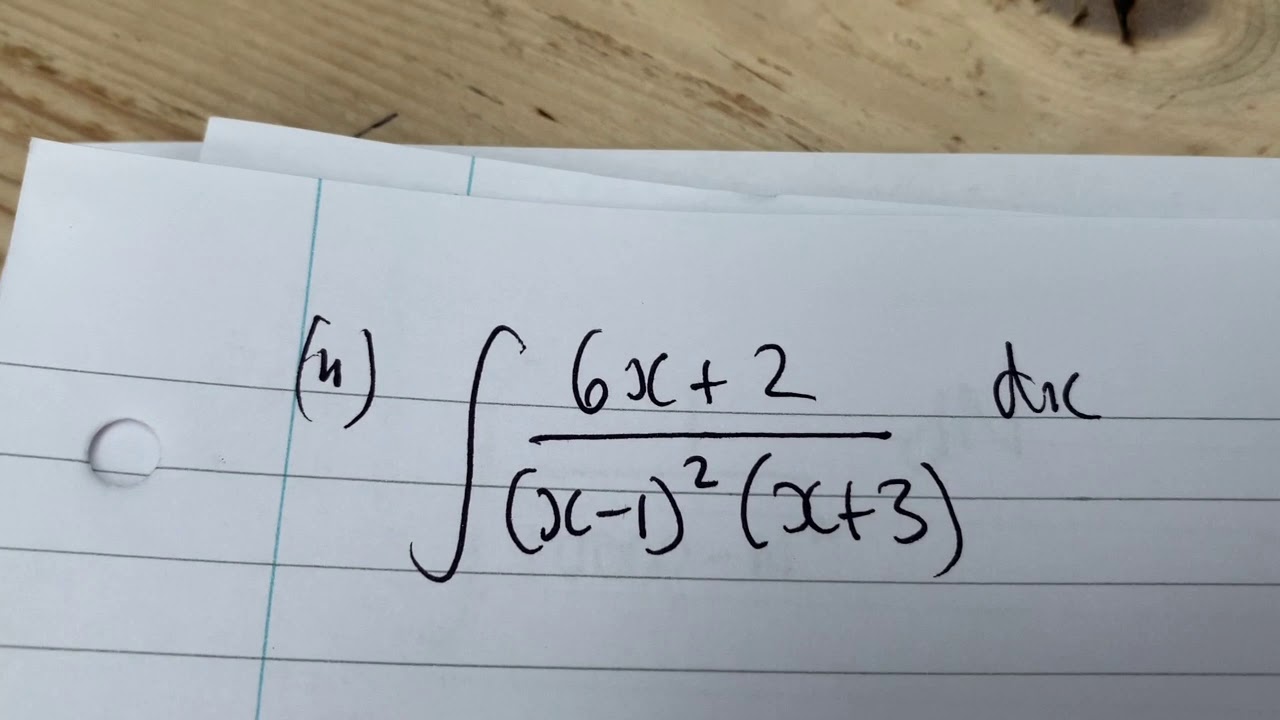 (n) ∫ (6x + 2) / ((x-1)² (x+3)) dx